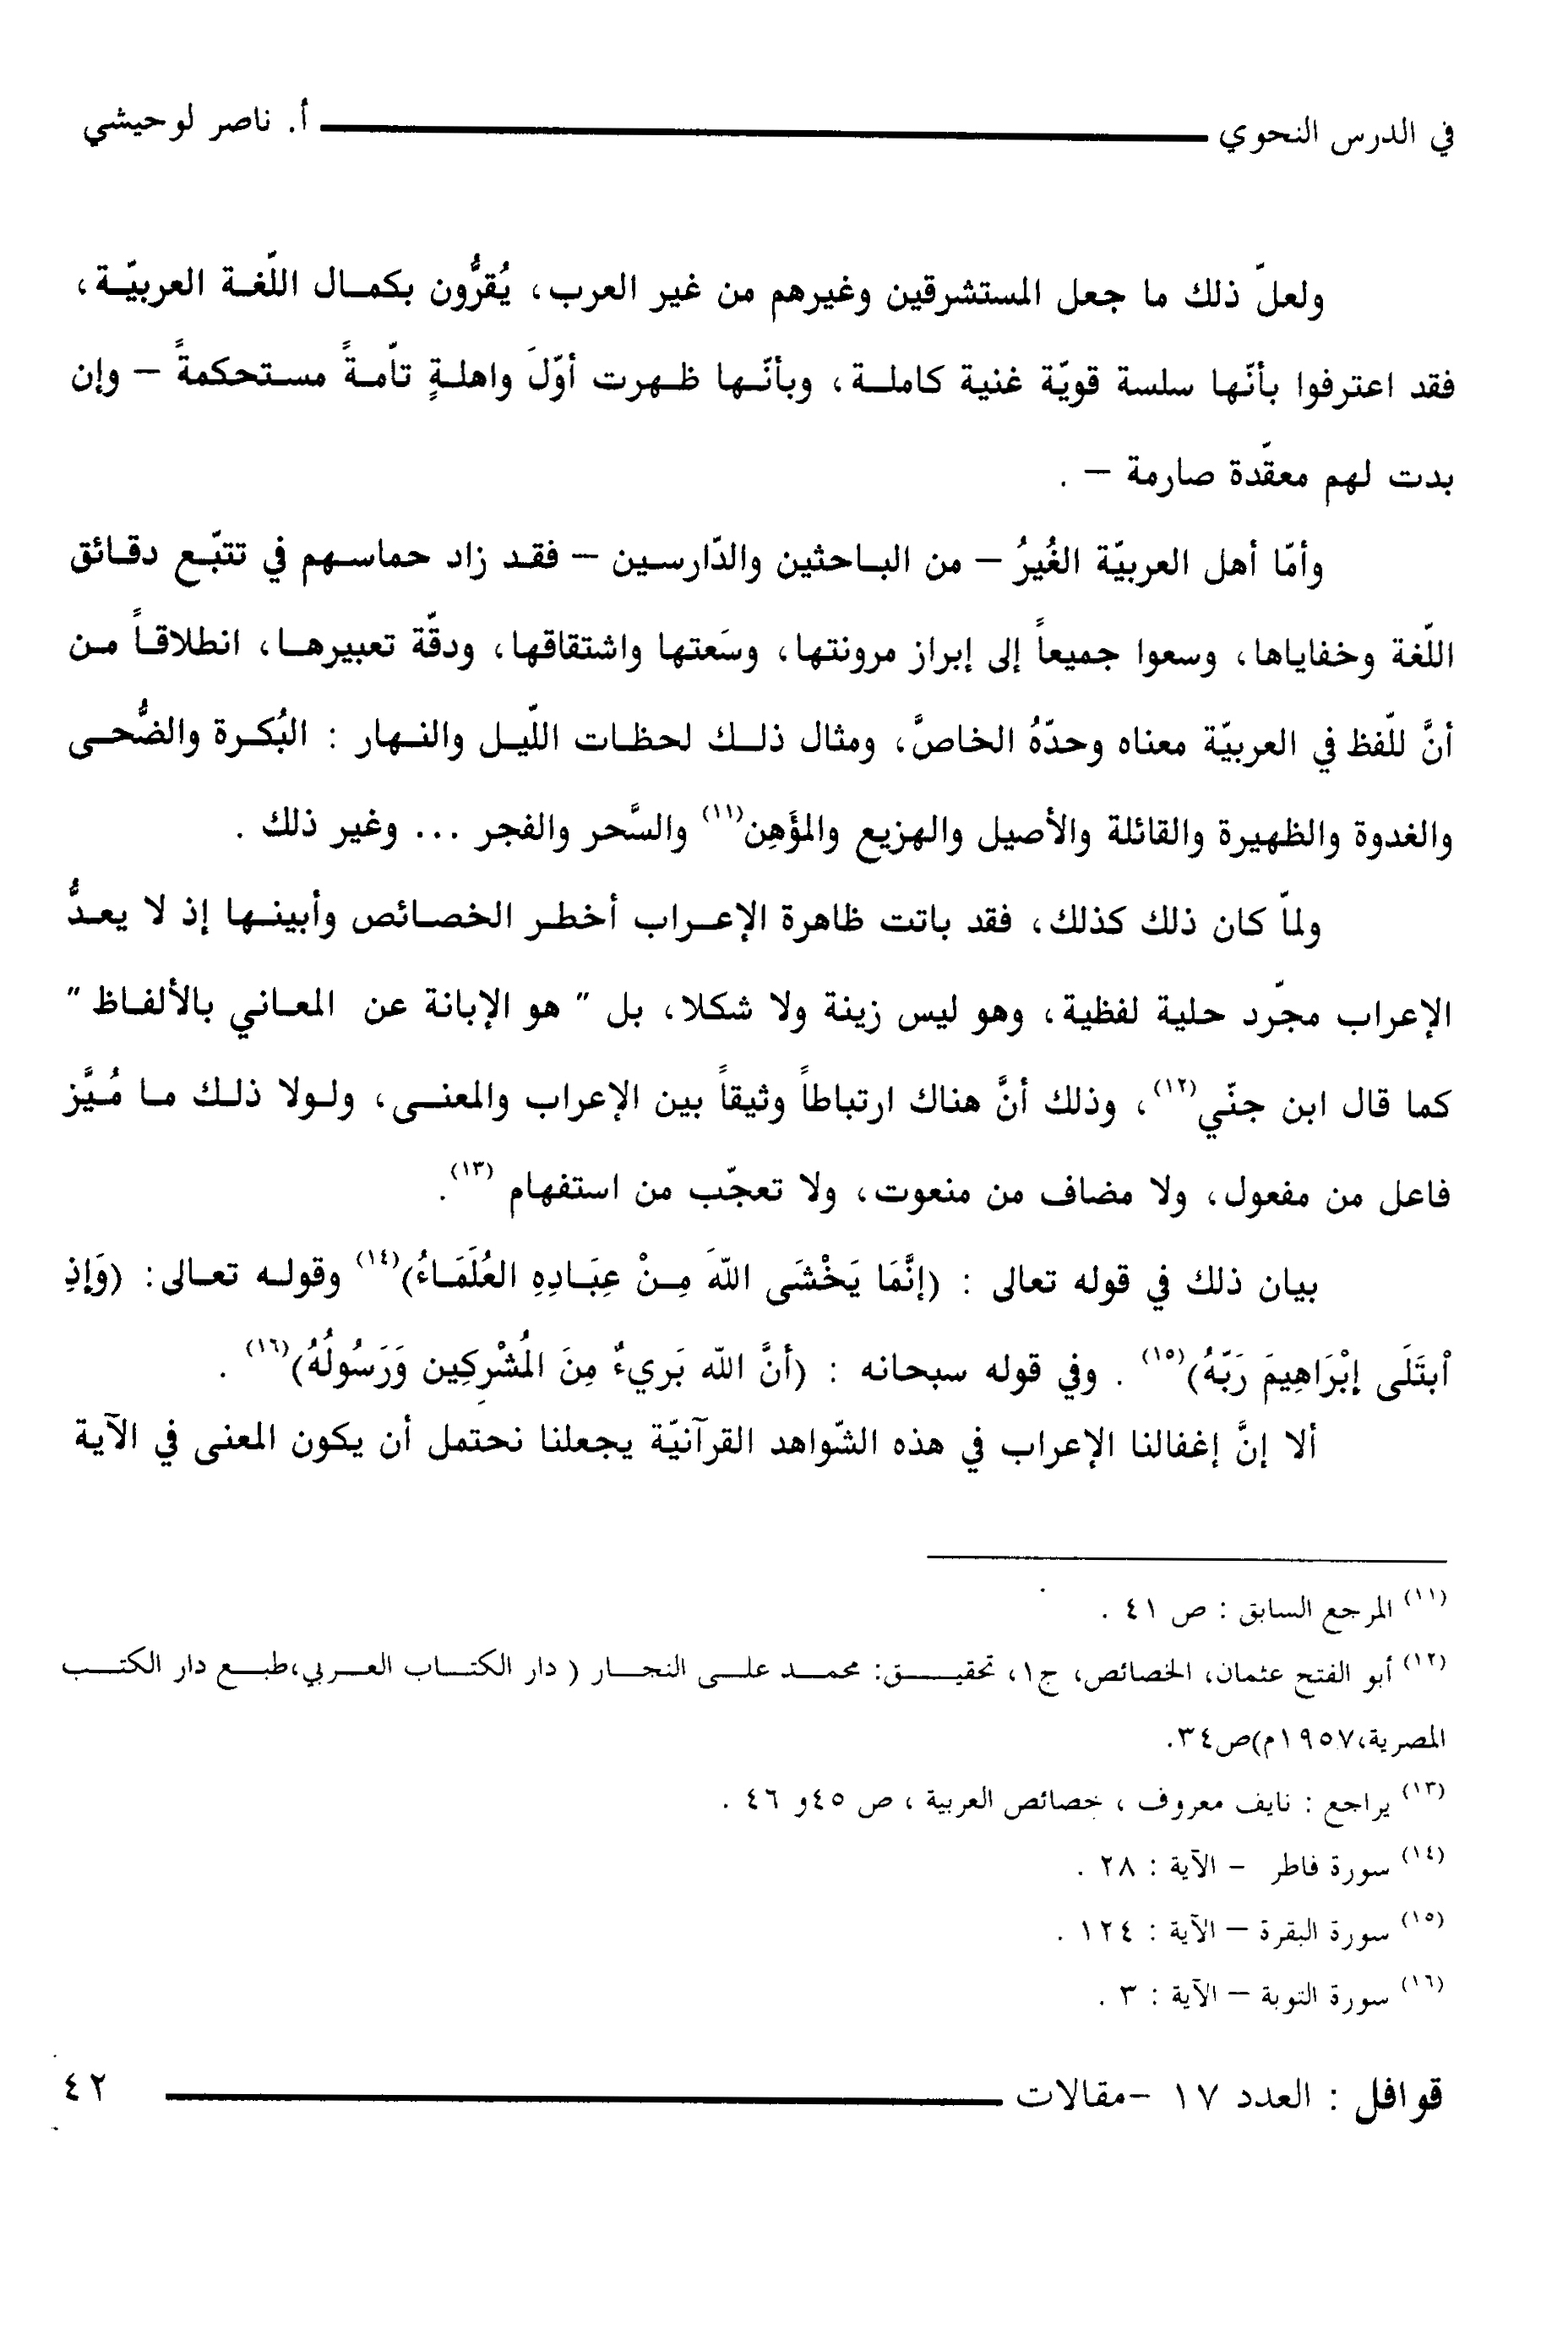 في الدرس النحوي أ. ناصر لوحيشي
ولعلّ ذلك ما جعل المستشرقين وغيرهم من غير العرب، يُقرُّون بكمال اللّغة العربيّة،
فقد اعترفوا بأنّها سلسة قويّة غنية كاملة، وبأنّها ظهرت أوّلَ واهلةٍ تامّةً مستحكمةً – وإن
بدت لهم معقّدة صارمة – .
وأمّا أهل العربيّة الغُيرُ – من الباحثين والدّارسين – فقد زاد حماسهم في تتبّع دقائق
اللّغة وخفاياها، وسعوا جميعاً إلى إبراز مرونتها، وسَعتها واشتقاقها، ودقّة تعبيرها، انطلاقاً من
أنَّ للّفظ في العربيّة معناه وحدّهُ الخاصَّ، ومثال ذلك لحظات اللّيل والنهار : البُكرة والضُّحى
والغدوة والظهيرة والقائلة والأصيل والهزيع والمؤَهِن(١١) والسَّحر والفجر ... وغير ذلك .
ولمّا كان ذلك كذلك، فقد باتت ظاهرة الإعراب أخطر الخصائص وأبينها إذ لا يعدُّ
الإعراب مجرّد حلية لفظية، وهو ليس زينة ولا شكلا، بل " هو الإبانة عن المعاني بالألفاظ "
كما قال ابن جنّي(١٢)، وذلك أنَّ هناك ارتباطاً وثيقاً بين الإعراب والمعنى، ولولا ذلك ما مُيَّز
فاعل من مفعول، ولا مضاف من منعوت، ولا تعجّب من استفهام (١٣).
بيان ذلك في قوله تعالى : (إنَّمَا يَخْشَى اللّهَ مِنْ عِبَادِهِ العُلَمَاءُ)(١٤) وقوله تعالى: (وَإذِ
اْبتَلَى إبْرَاهِيمَ رَبّهُ)(١٥) . وفي قوله سبحانه : (أنَّ اللّه بَريءٌ مِنَ المُشْرِكِين وَرَسُولُهُ)(١٦) .
ألا إنَّ إغفالنا الإعراب في هذه الشّواهد القرآنيّة يجعلنا نحتمل أن يكون المعنى في الآية
(١١) المرجع السابق : ص ٤١ .
(١٢) أبو الفتح عثمان، الخصائص، ج١، تحقيق: محمد على النجار ( دار الكتاب العربي،طبع دار الكتب
المصرية،١٩٥٧م)ص٣٤.
(١٣) يراجع : نايف معروف ، خصائص العربية ، ص ٤٥و ٤٦ .
(١٤) سورة فاطر – الآية : ٢٨ .
(١٥) سورة البقرة – الآية : ١٢٤ .
(١٦) سورة التوبة – الآية : ٣ .
قوافل : العدد ١٧ –مقالات ٤٢